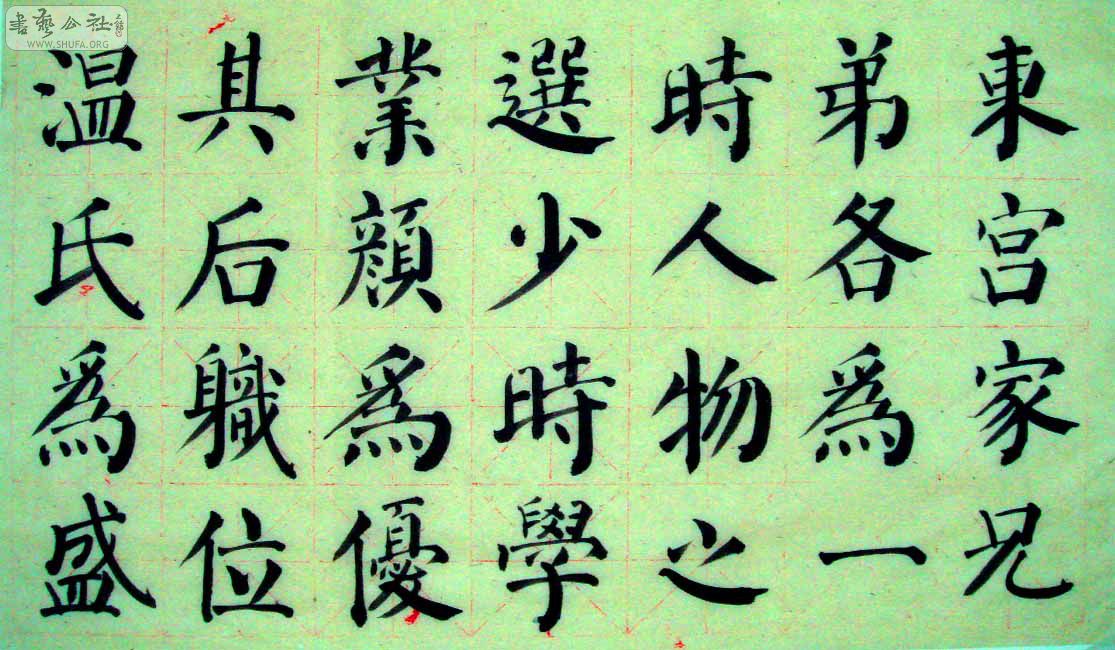 東宮家兄
弟各爲一
時人物之
選少時學
業顔爲優
其后職位
温氏爲盛
書藝公社
WWW.SHUFA.ORG